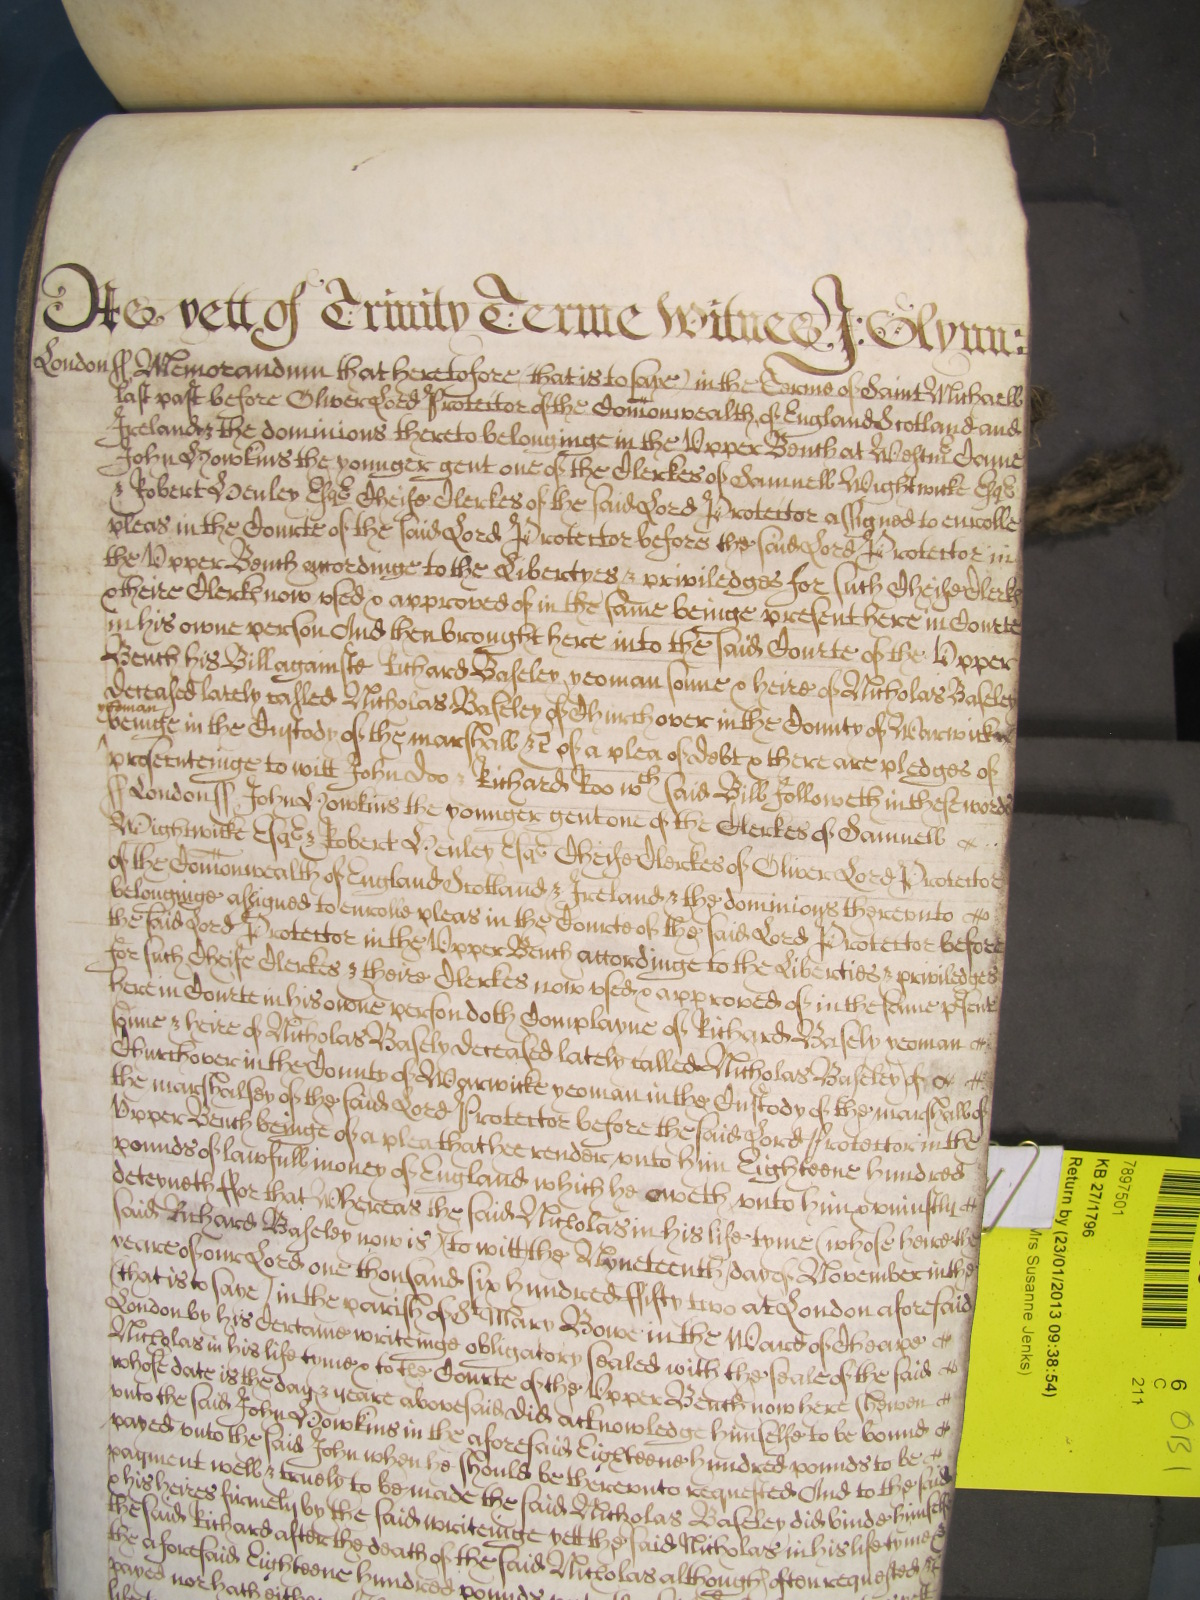 As yett of Trinity Terme Witnes J: Glynn:
London ss Memorandum that heretofore (that is to saye) in the Terme of Saint Michaell
last past before Oliver Lord Protector of the Comonwealth of England Scotland and
Ireland & the dominions thereto belonginge in the Upper Bench at Westmr Came
John Howkins the younger gent one of the Clerkes of Samuell Wightwicke Esqr
& Robert Henley Esqr Cheife Clerkes of the said Lord Protector assigned to enrolle
pleas in the Courte of the said Lord Protector before the said Lord Protector in
the Upper Bench accordinge to the Libertyes & priviledges for such Cheife Clerks
& theire Clerks now used & approved of in the same beinge present here in Courte
in his owne person And then brought here into the said Courte of the Upper
Bench his Bill againste Richard Baseley yeoman sonne & heire of Nicholas Baseley
deceased lately called Nicholas Baseley of Churchover in the County of Warwicke
yeoman
beinge in the Custody of the marshall &c of a plea of debt & there are pledges of
prosecuteinge to witt John Doo & Richard Roo wch said Bill followeth in these words
ss London ss John Howkins the younger gent one of the Clerkes of Samuell
Wightwicke Esqr & Robert Henley Esqr Cheife Clerkes of Oliver Lord Protector
of the Comonwealth of England Scotland & Ireland & the dominions thereunto
belonginge assigned to enrolle pleas in the Courte of the said Lord Protector before
the said Lord Protector in the Upper Bench accordinge to the Liberties & priviledges
for such Cheife Clerkes & theire Clerkes now used & approved of in the same psent
here in Courte in his owne person doth Complayne of Richard Basely yeoman
sonne & heire of Nicholas Basely deceased lately called Nicholas Baseley of
Churchover in the County of Warwicke yeoman in the Custody of the marshall of
the marshalsey of the said Lord Protector before the said Lord Protector in the
Upper Bench beinge of a plea that hee render unto him Eighteene hundred
pounds of lawfull money of England which he oweth unto him & uniustly
deteyneth ffor that Whereas the said Nicholas in his life tyme (whose heire the
said Richard Baseley now is) to witt the Nyneteenth day of November in the
yeare of our Lord one thousand six hundred ffifty two at London aforesaid
(that is to saye) in the parish of St Mary Bowe in the Ward of Cheape
London by his Certaine writeinge obligatory sealed with the seale of the said
Nicholas in his life tyme & to the Courte of the Upper Bench now here shewen
whose date is the day & yeare abovesaid did acknowledge himselfe to be bound
unto the said John Howkins in the aforesaid Eighteene hundred pounds to be
payed unto the said John when he should be thereunto requested And to the said
payment well & truely to be made the said Nicholas Baseley did binde himselfe
& his heires firmely by the said writeinge yett the said Nicholas in his life tyme &
the said Richard after the death of the said Nicholas although often requested &c
the aforesaid Eighteene hundred pounds
payed nor hath either
7897501
KB 27/1796
Return by (23/01/2013 09:38:54)
Mrs Susanne Jenks)
6
C
211